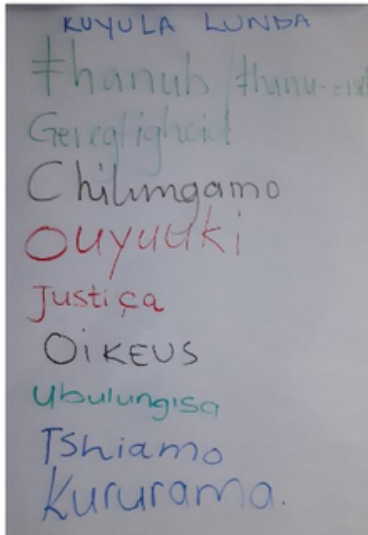 KUYULA LUNDA
ǂhanub /ǂhanu-eisi
Geregtigheid
Chilungamo
Ouyuuki
Justiça
OiKEUS
Ubulungisa
Tshiamo
Kururama.